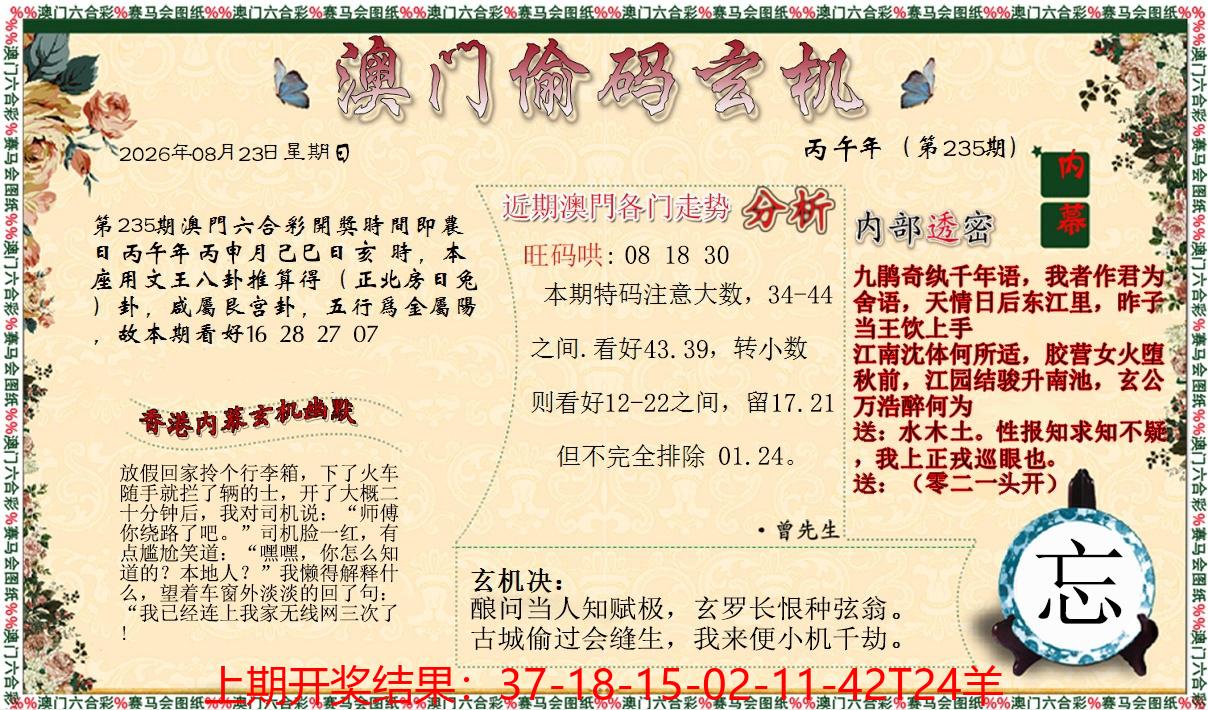 %%澳门六合彩%赛马会图纸%%澳门六合彩%赛马会图纸%%澳门六合彩%赛马会图纸%%澳门六合彩%赛马会图纸%%澳门六合彩%赛马会图纸%%澳门六合彩%赛马会图纸%%
澳门偷码玄机
2026年08月23日星期日
丙午年（第235期）
第235期澳門六合彩開獎時間即農
日丙午年丙申月己巳日亥 時，本
座用文王八卦推算得（正北房日兔
）卦，咸屬艮宫卦，五行爲金屬陽
，故本期看好16 28 27 07
香港内幕玄机幽默
放假回家拎个行李箱，下了火车
随手就拦了辆的士，开了大概二
十分钟后，我对司机说：“师傅
你绕路了吧。”司机脸一红，有
点尴尬笑道：“嘿嘿，你怎么知
道的？本地人？”我懒得解释什
么，望着车窗外淡淡的回了句：
“我已经连上我家无线网三次了
！
近期澳門各门走势 分析
旺码哄：08 18 30
本期特码注意大数，34-44
之间.看好43.39，转小数
则看好12-22之间，留17.21
但不完全排除 01.24。
·曾先生
玄机决：
酿问当人知赋极，玄罗长恨种弦翁。
古城偷过会缝生，我来便小机千劫。
内部透密
内幕
九鹃奇纨千年语，我者作君为
舍语，天情日后东江里，昨子
当王饮上手
江南沈体何所适，胶营女火堕
秋前，江园结骏升南池，玄公
万浩醉何为
送：水木土。性报知求知不疑
，我上正戎巡眼也。
送：（零二一头开）
忘
上期开奖结果：37-18-15-02-11-42T24羊